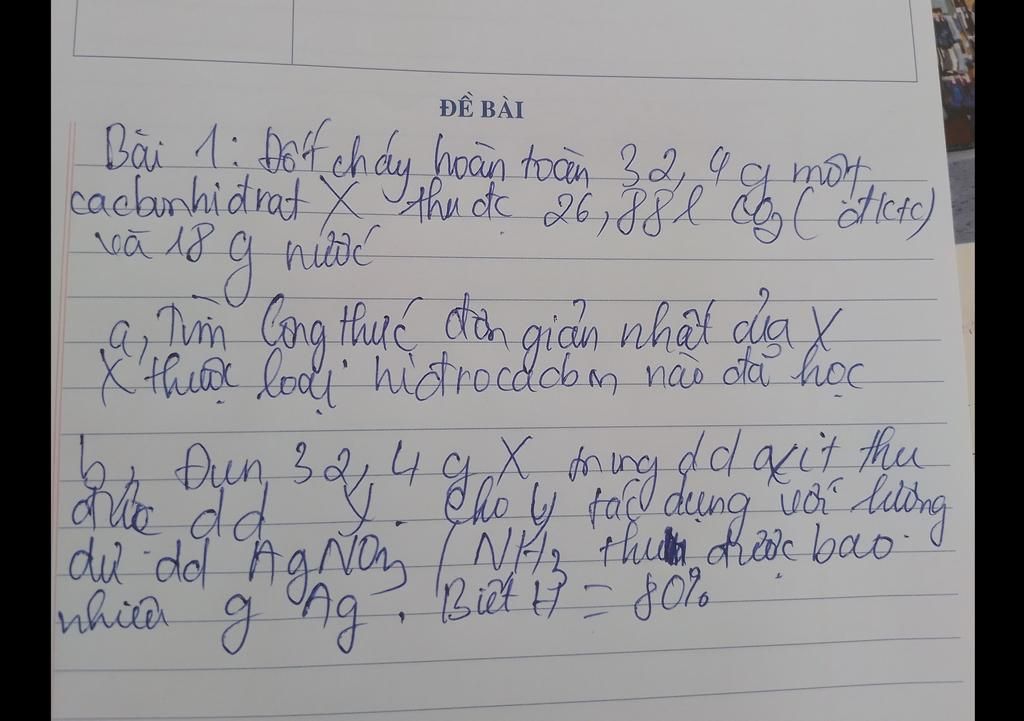 ĐỀ BÀI
Bài 1: Đốt cháy hoàn toàn 32,4 g một
cacbonhiđrat X thu đc 26,88l CO2 (đktc)
và 18 g nước
a, Tìm Công thức đơn giản nhất của X
X thuộc loại hiđrocacbon nào đã học
b, Đun 32,4 g X trong dd axit thu
được dd Y. Cho y tác dụng với lượng
dư dd AgNO3 / NH3 thu được bao
nhiêu g Ag. Biết H = 80%